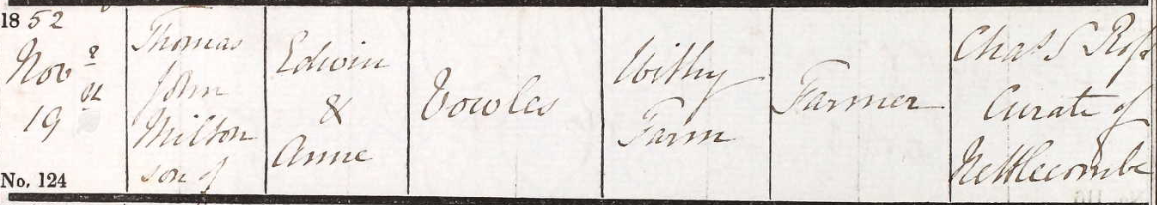 1852
Novr
19th
No. 124
Thomas
John
Milton
son of
Edwin
&
Anne
Vowles
Withy
Farm
Farmer
Chas S Ross
Curate of
Nettlecombe